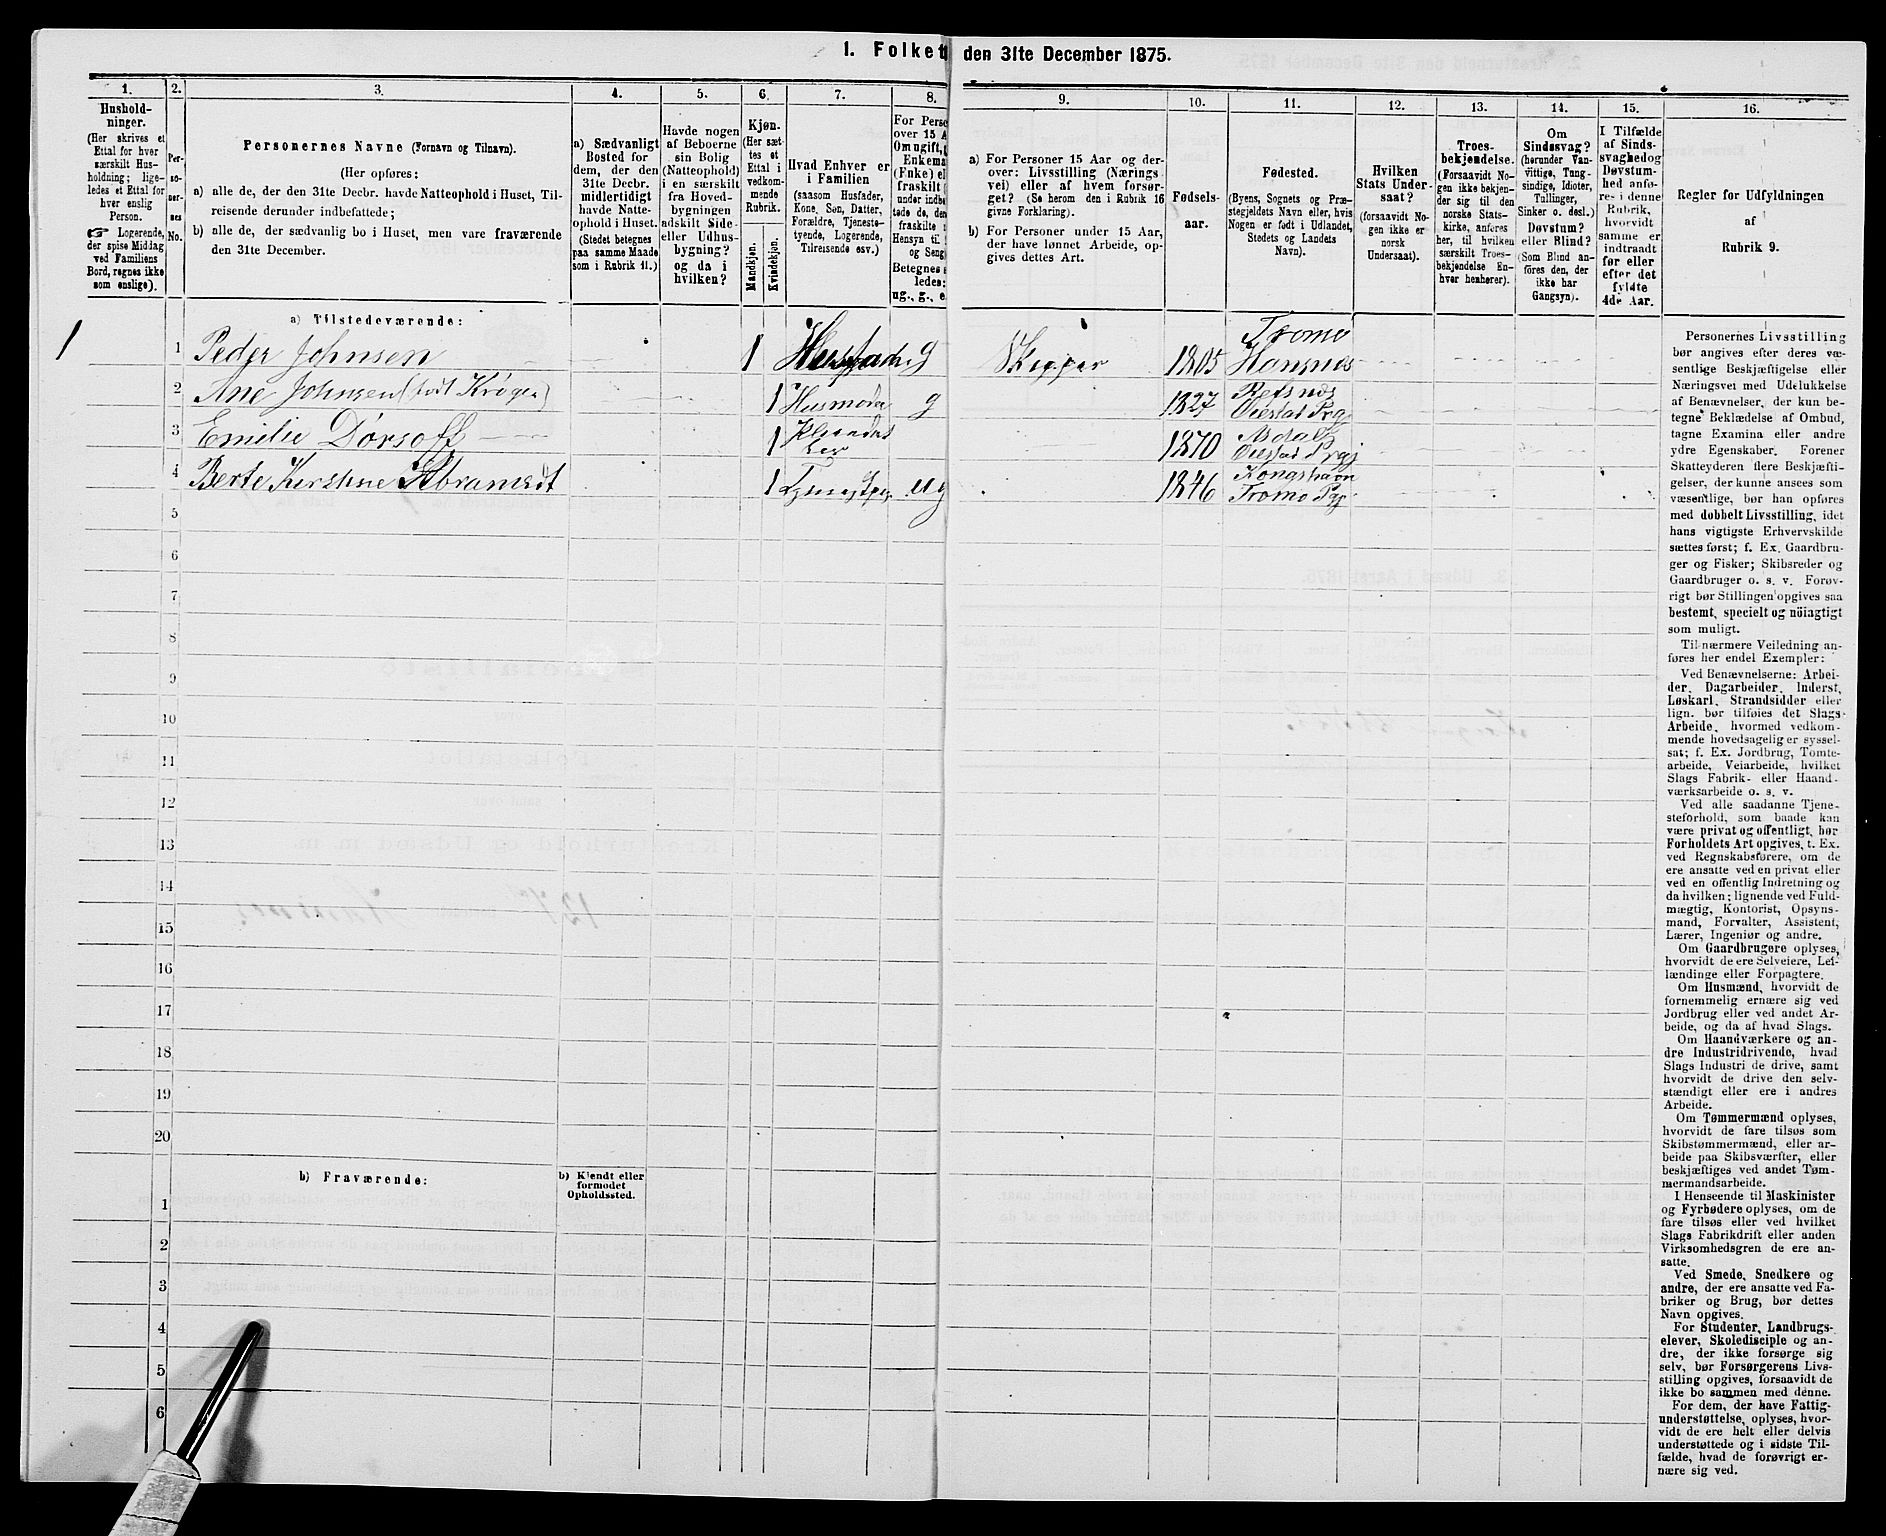 1. Folket den 31te December 1875.
1.
Hushold-
ninger.
(Her skrives et
Ettal for hver
særskilt Hus-
holdning; lige-
ledes et Ettal for
hver enslig
Person.
☞ Logerende,
der spise Middag
ved Familiens
Bord, regnes ikke
som enslige).
2.
Per-
so-
ner-
nes
No.
3.
Personernes Navne (Fornavn og Tilnavn).
(Her opføres:
a) alle de, der den 31te Decbr. havde Natteophold i Huset, Til-
reisende derunder indbefattede;
b) alle de, der sædvanlig bo i Huset, men vare fraværende
den 31te December.
4.
a) Sædvanligt
Bosted for
dem, der den
31te Decbr.
midlertidigt
havde Natte-
ophold i Huset.
(Stedet betegnes
paa samme Maade
som i Rubrik 11.)
5.
Havde nogen
af Beboerne
sin Bolig
(Natteophold)
i en særskilt
fra Hoved-
bygningen
adskilt Side-
eller Udhus-
bygning?
og da i
hvilken?
6.
Kjøn.
(Her sæt-
tes et
Ettal i
vedkom-
mende
Rubrik.
Mandkjøn.
Kvindekjøn.
7.
Hvad Enhver er
i Familien
(saasom Husfader,
Kone, Søn, Datter,
Forældre, Tjeneste-
tyende, Logerende,
Tilreisende osv.)
8.
For Perso
over 15 A
Om ugift,
Enkema
(Enke) el
fraskilt
under indbe
tede de, der
fraskilte
Hensyn til
og Seng
Betegnes s
ledes:
ug., g., e.
9.
a) For Personer 15 Aar og der-
over: Livsstilling (Nærings
vei) eller af hvem forsør-
get? (Se herom den i Rubrik 16
givne Forklaring).
b) For Personer under 15 Aar,
der have lønnet Arbeide, op-
gives dettes Art.
10.
Fødsels-
aar.
11.
Fødested.
(Byens, Sognets og Præ-
stegjeldets Navn eller, hvis
Nogen er født i Udlandet,
Stedets og Landets
Navn).
12.
Hvilken
Stats Under-
saat?
(forsaavidt No-
gen ikke er
norsk
Undersaat).
13.
Troes-
bekjendelse.
(Forsaavidt No-
gen ikke bekjen-
der sig til den
norske Stats-
kirke, anføres
her, til hvilken
særskilt Troes-
bekjendelse En-
hver henhører).
14.
Om
Sindssvag?
(herunder Van-
vittige, Tung-
sindige, Idioter,
Tullinger,
Sinker o. desl.)
Døvstum?
eller Blind?
(Som Blind an-
føres den, der
ikke har
Gangsyn).
15.
I Tilfælde
af Sinds-
svaghed og
Døvstum-
hed anfø-
res i denne
Rubrik,
hvorvidt
samme er
indtraadt
før eller
efter det
fyldte
4de Aar.
16.
Regler for Udfyldningen
af
Rubrik 9.
a) Tilstedeværende:
1 1 Peder Johnsen 1 Husfader g Skipper 1805 Tromø Hansnes
2 Ane Johnsen (født Krøger) 1 Husmoder g 1827 Refsnæs Oiestad Prgj
3 Emilie Dørsoff 1 1870 Asdal Oiestad Prgj
4 Berte Kirstine Abramsdt 1 ug 1846 Kongshavn Tromø Pgj
5
6
7
8
9
10
11
12
13
14
15
16
17
18
19
20
b) Fraværende:
b) Kjendt eller
formodet
Opholdssted.
1
2
3
4
5
6
Personernes Livsstilling
bør angives efter deres væ-
sentlige Beskjæftigelse eller
Næringsvei med Udelukkelse
af Benævnelser, der kun be-
tegne Beklædelse af Ombud,
tagne Examina eller andre
ydre Egenskaber. Forener
Skatteyderen flere Beskjæfti-
gelser, der kunne ansees som
væsentlige, bør han opføres
med dobbelt Livsstilling, idet
hans vigtigste Erhvervskilde
sættes først; f. Ex. Gaardbru-
ger og Fisker; Skibsreder og
Gaardbruger o. s. v. Forøv-
rigt bør Stillingen opgives saa
bestemt, specielt og nöiagtigt
som muligt.
Til nærmere Veiledning an-
føres her endel Exempler:
Ved Benævnelserne: Arbei-
der, Dagarbeider, Inderst,
Løskarl, Strandsidder eller
lign. bør tilføies det Slags
Arbeide, hvormed vedkom-
mende hovedsagelig er syssel-
sat; f. Ex. Jordbrug, Tomte-
arbeide, Veiarbeide, hvilket
Slags Fabrik- eller Haand-
værksarbeide o. s. v.
Ved alle saadanne Tjene-
steforhold, som baade kan
være privat og offentligt, bør
Forholdets Art opgives, t. Ex.
ved Regnskabsførere, om de
ere ansatte ved en privat eller
ved en offentlig Indretning og
da hvilken; lignende ved Fuld-
mægtig, Kontorist, Opsyns-
mand, Forvalter, Assistent,
Lærer, Ingeniør og andre.
Om Gaardbrugere oplyses,
hvorvidt de ere Selveiere, Lei-
lændinge eller Forpagtere.
Om Husmænd, hvorvidt de
fornemmelig ernære sig ved
Jordbrug eller ved andet Ar-
beide, og da af hvad Slags.
Om Haandværkere og an-
dre Industridrivende, hvad
Slags Industri de drive, samt
hvorvidt de drive den selv-
stændigt eller ere i andres
Arbeide.
Om Tømmermænd oplyses,
hvorvidt de fare tilsøs som
Skibstømmermænd, eller ar-
beide paa Skibsværfter, eller
beskjæftiges ved andet Tøm-
mermandsarbeide.
I Henseende til Maskinister
og Fyrbødere oplyses, om de
fare tilsøs eller ved hvilket
Slags Fabrikdrift eller anden
Virksomhedsgren de ere an-
satte.
Ved Smede, Snedkere og
andre, der ere ansatte ved Fa-
briker og Brug, bør dettes
Navn opgives.
For Studenter, Landbrugs-
elever, Skoledisciple og an-
dre, der ikke forsørge sig
selv, bør Forsørgerens Livs-
stilling opgives, forsaavidt de
ikke bo sammen med denne.
For dem, der have Fattig-
understøttelse, oplyses, hvor-
vidt de ere helt eller delvis
understøttede og i sidste Til-
fælde, hvad de forøvrigt er-
nære sig ved.